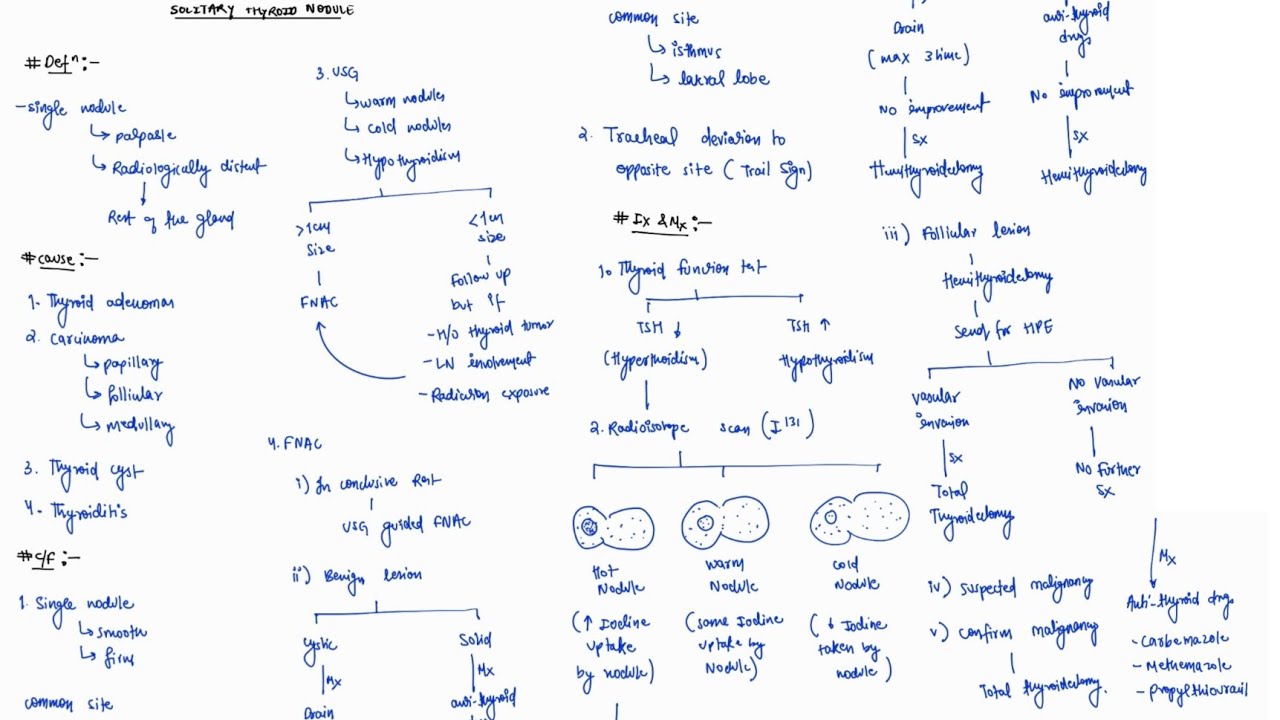 SOLITARY THYROID NODULE
# Defⁿ :-
- single nodule
↳ palpable
↳ Radiologically distent
↓
Rest of the gland
# cause :-
1. Thyroid adenomas
2. Carcinoma
↳ papillary
↳ follicular
↳ medullary
3. Thyroid cyst
4. Thyroiditis
# c/f :-
1. Single nodule
↳ smooth
↳ firm
common site
3. USG
↳ warm nodules
↳ cold nodules
↳ Hypothyroidism
>1cm
size
FNAC
<1cm
size
follow up
but if
- H/O thyroid tumor
- LN involvement
- Radiation exposure
4. FNAC
i) In conclusive Rest
USG guided FNAC
ii) Benign lesion
cystic
Mx
Drain
Solid
Mx
anti-thyroid
common site
↳ isthmus
↳ lateral lobe
2. Tracheal deviation to
opposite site (Trail Sign)
# Ix & Mx :-
1. Thyroid function test
TSH ↓
(Hyperthoidism)
TSH ↑
Hypothyroidism
2. Radioisotope scan (I¹³¹)
Hot
Nodule
(↑ Iodine
uptake
by nodule)
warm
Nodule
(same Iodine
uptake by
Nodule)
cold
Nodule
(↓ Iodine
taken by
nodule)
Drain
(max 3 time)
No improvement
Sx
Hemithyroidectomy
anti-thyroid
drugs
No improvement
Sx
Hemithyroidectomy
iii) Follicular lesion
Hemithyroidectomy
Send for HPE
Vasular
invasion
Sx
Total
Thyroidectomy
No Vasular
invasion
No Further
Sx
iv) suspected malignancy
v) confirm malignancy
Total thyroidectomy.
Mx
Anti-thyroid drugs
- Carbemazole
- Methemazole
- Propylthiourail